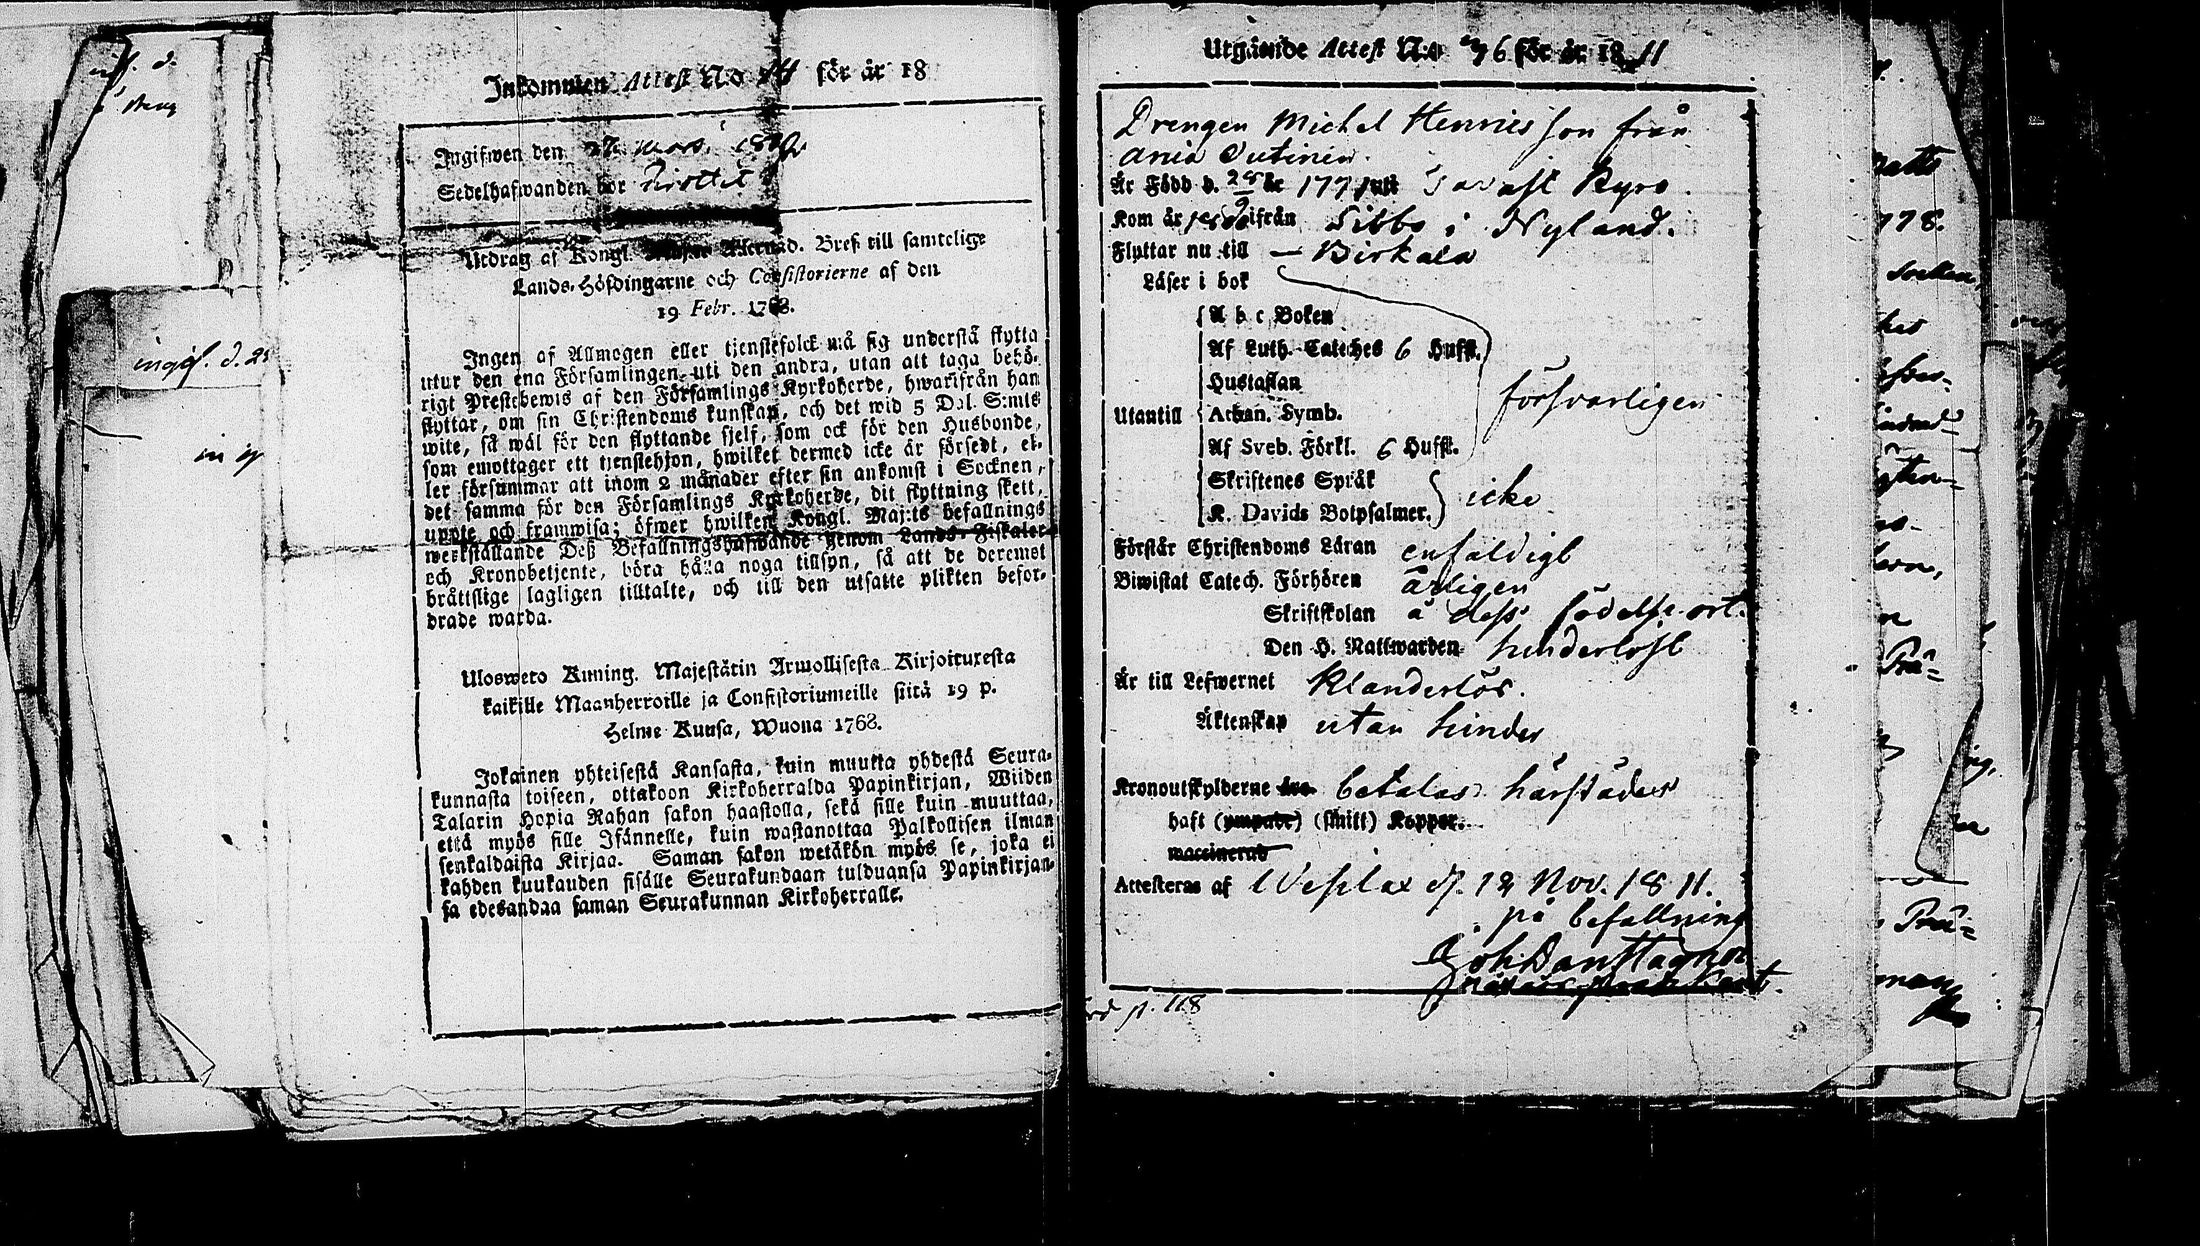 Inkommen Attest N:o för år 18
Ingifwen den 27 mars 18
Sedelhafwanden bor
Utdrag af Kongl. Bref till samtelige
Lands-Höfdingarne och Consistorierne af den
19 Febr. 1768.
Ingen af Allmogen eller tjenstefolck må sig understå flytta
utur den ena Församlingen uti den andra, utan att taga behö-
rigt Prestebewis af den Församlings Kyrkoherde, hwarifrån han
flyttar, om sin Christendoms kunskap, och det wid 5 Dal. S:mts
wite, så wäl för den flyttande sjelf, som ock för den Husbonde,
som emottager ett tjenstehjon, hwilket dermed icke är försedt, el-
ler försummar att inom 2 månader efter sin ankomst i Socknen,
det samma för den Församlings Kyrkoherde, dit flyttning skett,
uppte och framwisa; öfwer hwilken Kongl. Maj:ts befallnings
werkställande Deß Befallningshafwande genom Lands-Fiskaler
och Kronobetjente, böra hålla noga tillsyn, så att de deremot
bråttslige lagligen tilltalte, och till den utsatte plikten befor-
drade warda.
Ulosweto Kuning. Majestätin Armollisesta Kirjoituxesta
kaikille Maanherroille ja Consistoriumeille siitä 19 p.
Helme Kuusa, Wuona 1768.
Jokainen yhteisestä Kansasta, kuin muutta yhdestä Seura-
kunnasta toiseen, ottakoon Kirkoherralda Papinkirjan, Wiiden
Talarin Hopia Rahan sakon haastolla, sekä sille kuin muuttaa,
että myös sille Isännelle, kuin wastanottaa Palkollisen ilman
senkaldaista Kirjaa. Saman sakon wetäkön myös se, joka ei
kahden kuukauden sisälle Seurakundaan tulduansa Papinkirjan-
sa edesandaa saman Seurakunnan Kirkoherralle.
Utgående Attest N:o 76 för år 1811
Drengen Michel Henricsson från
Ania Outinen.
Är Född d. 28 år 1771 uti Tavast Kyro.
Kom år ifrån Sibbo i Nyland.
Flyttar nu till — Birkala
Läser i bok
A b c Boken
Af Luth. Cateches 6 Hufst.
Hustaflan
Utantill Athan. Symb. försvarligen
Af Sveb. Förkl. 6 Hufst.
Skriftenes Språk
K. Davids Botpsalmer. icke
Förstår Christendoms Läran enfaldigt
Biwistat Catech. Förhören årligen
Skriftskolan å dess födelse ort.
Den H. Nattwarden hinderlöst
Är till Lefwernet Klanderlös.
Äktenskap utan hinder
Kronoutskylderne äro betalas härstädes
haft (ympade) (smitt) Koppor.
waccinerad
Attesteras af Wesilax d. 12 Nov. 1811.
på befallning
Joh. Dan.
p. 118
ingif. d. 2